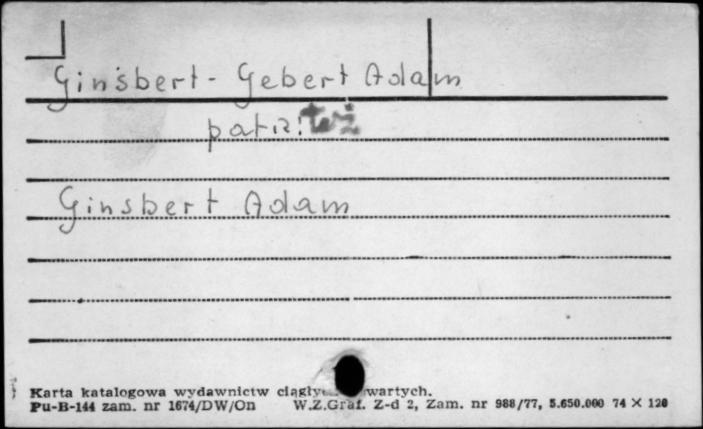 Ginsbert - Gebert Adam
patrz: też
Ginsbert Adam
Karta katalogowa wydawnictw wartych.
Pu-B-144 zam. nr 1674/DW/On W.Z.Graf. Z-d 2, Zam. nr 988/77, 5.650.000 74 × 120